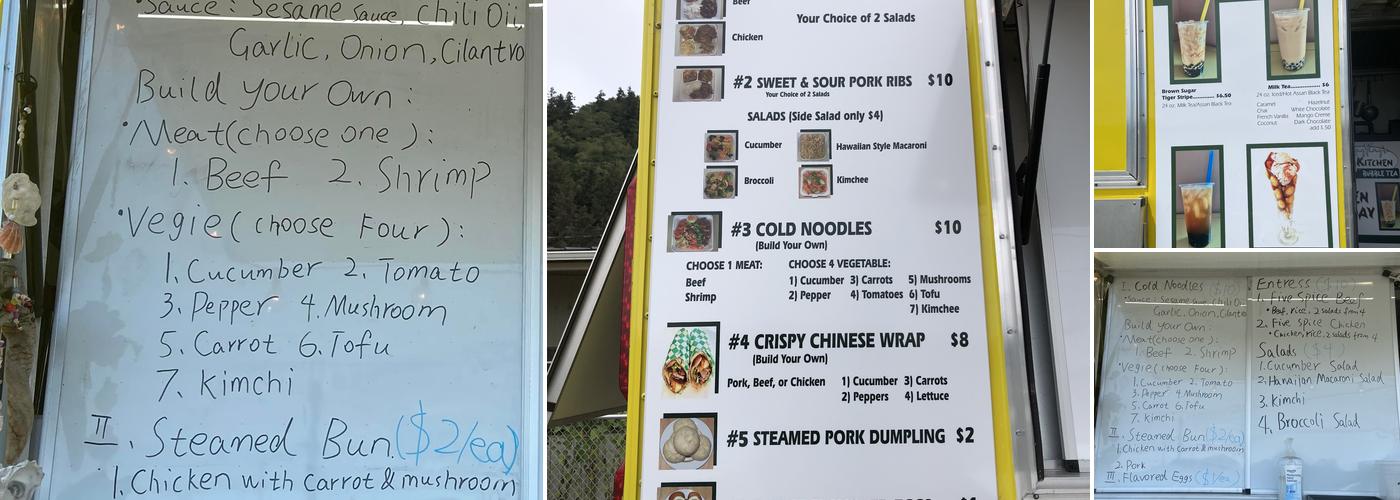 Sauce: Sesame sauce, Chili Oil,
Garlic, Onion, Cilantro
Build your Own:
•Meat(choose one):
1. Beef 2. Shrimp
•Vegie(choose Four):
1. Cucumber 2. Tomato
3. Pepper 4. Mushroom
5. Carrot 6. Tofu
7. Kimchi
II. Steamed Bun ($2/ea)
1. Chicken with Carrot & mushroom
Beef
Your Choice of 2 Salads
Chicken
#2 SWEET & SOUR PORK RIBS $10
Your Choice of 2 Salads
SALADS (Side Salad only $4)
Cucumber Hawaiian Style Macaroni
Broccoli Kimchee
#3 COLD NOODLES $10
(Build Your Own)
CHOOSE 1 MEAT: CHOOSE 4 VEGETABLE:
Beef 1) Cucumber 3) Carrots 5) Mushrooms
Shrimp 2) Pepper 4) Tomatoes 6) Tofu
7) Kimchee
#4 CRISPY CHINESE WRAP $8
(Build Your Own)
Pork, Beef, or Chicken 1) Cucumber 3) Carrots
2) Peppers 4) Lettuce
#5 STEAMED PORK DUMPLING $2
Brown Sugar
Tiger Stripe............ $6.50
24 oz. Milk Tea/Assan Black Tea
Milk Tea............ $6
24 oz. Iced/Hot Assan Black Tea
Caramel Hazelnut
Chai White Chocolate
French Vanilla Mango Creme
Coconut Dark Chocolate
add $.50
KITCHEN
BUBBLE TEA
I. Cold Noodles
•Sauce: Sesame sauce, Chili Oil
Garlic, Onion, Cilantro
Build your Own:
•Meat(choose one):
1. Beef 2. Shrimp
•Vegie(choose Four):
1. Cucumber 2. Tomato
3. Pepper 4. Mushroom
5. Carrot 6. Tofu
7. Kimchi
II. Steamed Bun ($2/ea)
1. Chicken with Carrot & mushroom
2. Pork
III. Flavored Eggs ($1/ea)
Entress
1. Five Spice Beef
•Beef, rice, 2 salads from 4
2. Five Spice Chicken
•Chicken, rice, 2 salads from 4
Salads
1. Cucumber Salad
2. Hawaiian Macaroni Salad
3. Kimchi
4. Broccoli Salad